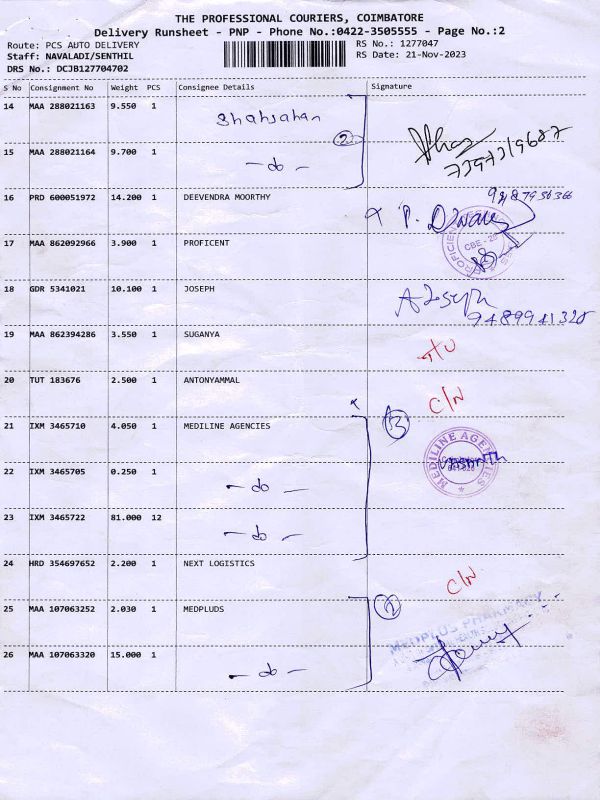 THE PROFESSIONAL COURIERS, COIMBATORE
Delivery Runsheet - PNP - Phone No.:0422-3505555 - Page No.:2
Route: PCS AUTO DELIVERY RS No.: 1277047
Staff: NAVALADI/SENTHIL RS Date: 21-Nov-2023
DRS No.: DCJB127704702
S No Consignment No Weight PCS Consignee Details Signature
14 MAA 288021163 9.550 1 Shahjahan
2
7397319687
15 MAA 288021164 9.700 1 - do -
16 PRD 600051972 14.200 1 DEEVENDRA MOORTHY
17 MAA 862092966 3.900 1 PROFICENT
CBE - 28
18 GDR 5341021 10.100 1 JOSEPH A Joseph
9489941325
19 MAA 862394286 3.550 1 SUGANYA
20 TUT 183676 2.500 1 ANTONYAMMAL C/N
21 IXM 3465710 4.050 1 MEDILINE AGENCIES 3
MEDILINE AGENCIES
22 IXM 3465705 0.250 1 - do -
23 IXM 3465722 81.000 12 - do -
24 HRD 354697652 2.200 1 NEXT LOGISTICS C/N
25 MAA 107063252 2.030 1 MEDPLUDS 2
MEDPLUS PHARMACY
26 MAA 107063320 15.000 1 - do -